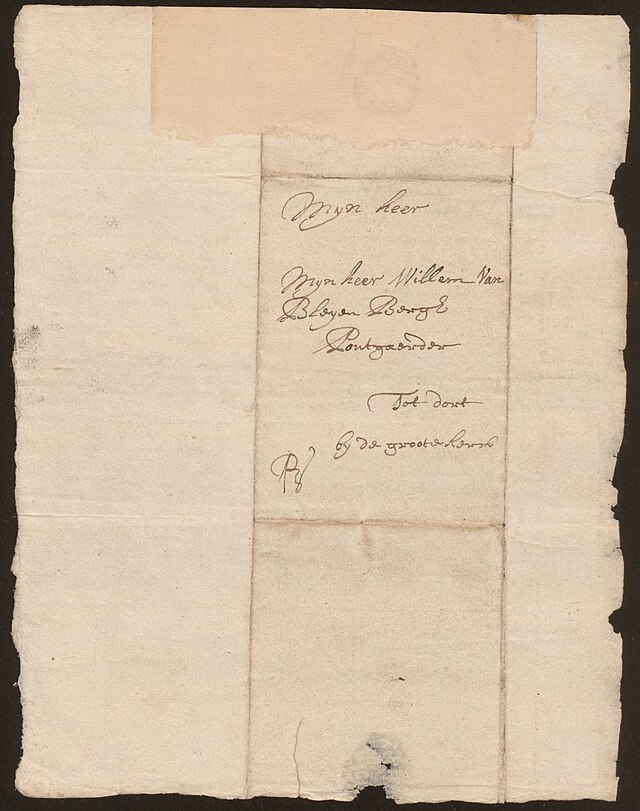 Mijn heer
Mijn heer Willem Van
Bleyen Bergh
Contgaerder
Tot dort
bij de groote kerck